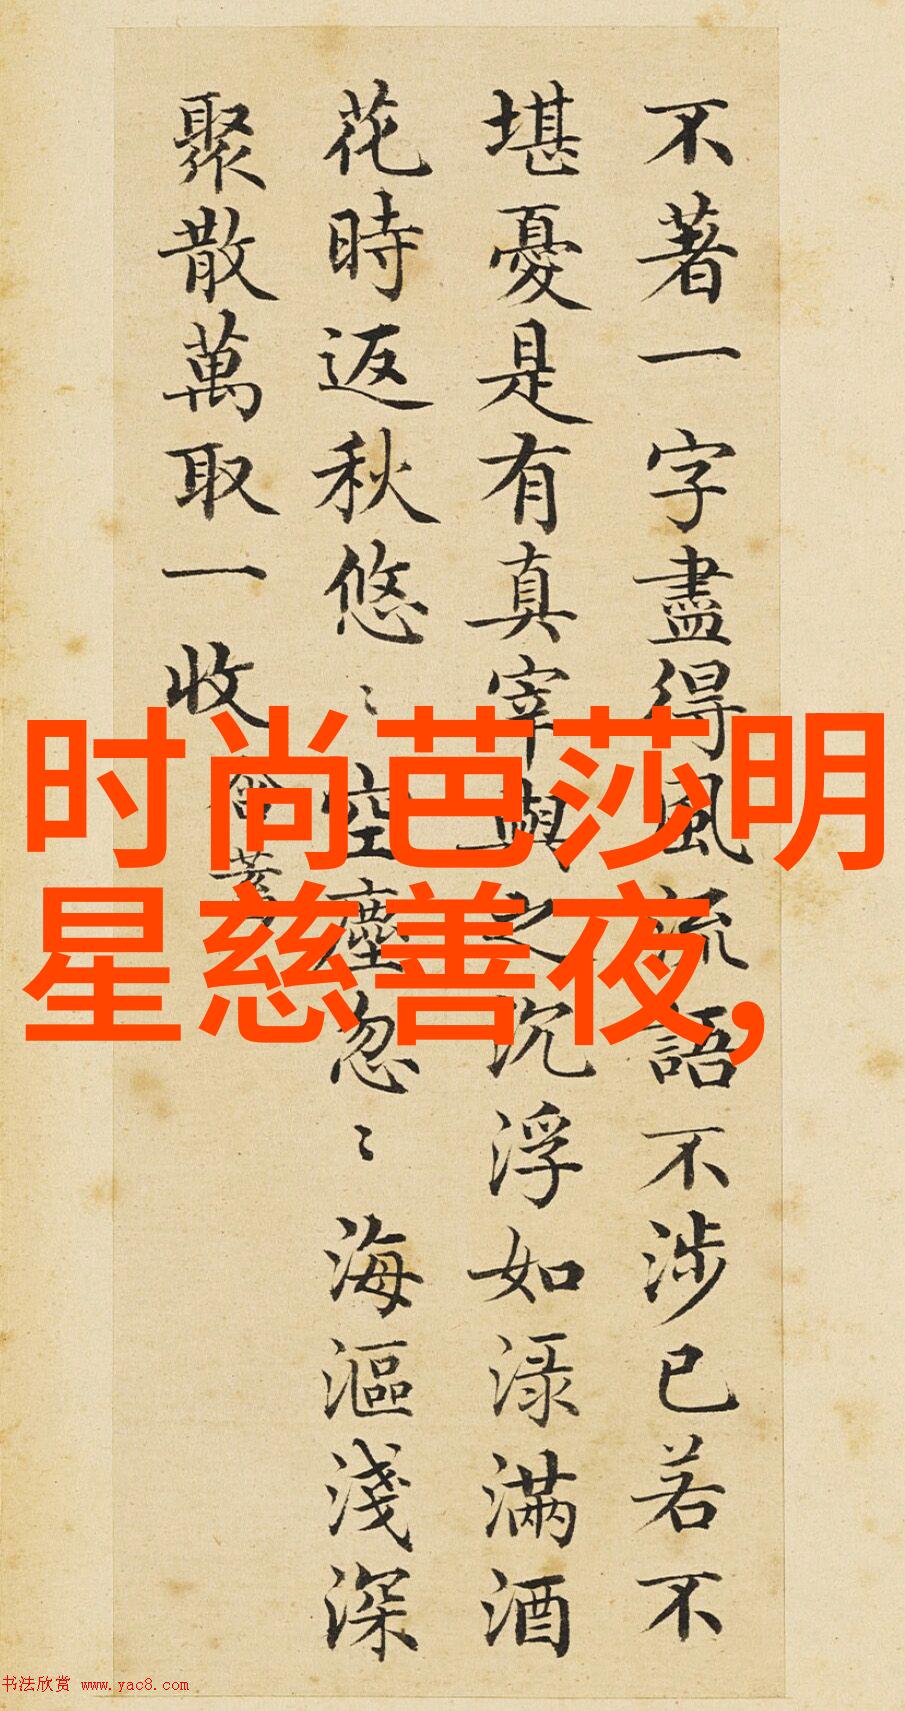 不著一字盡得風流語不涉已若不
堪憂是有真宰與之沉浮如渌滿酒
花時返秋悠〻空塵忽〻海漚淺深
聚散萬取一收
时尚芭莎明
星慈善夜,
书法欣赏 www.yac8.com